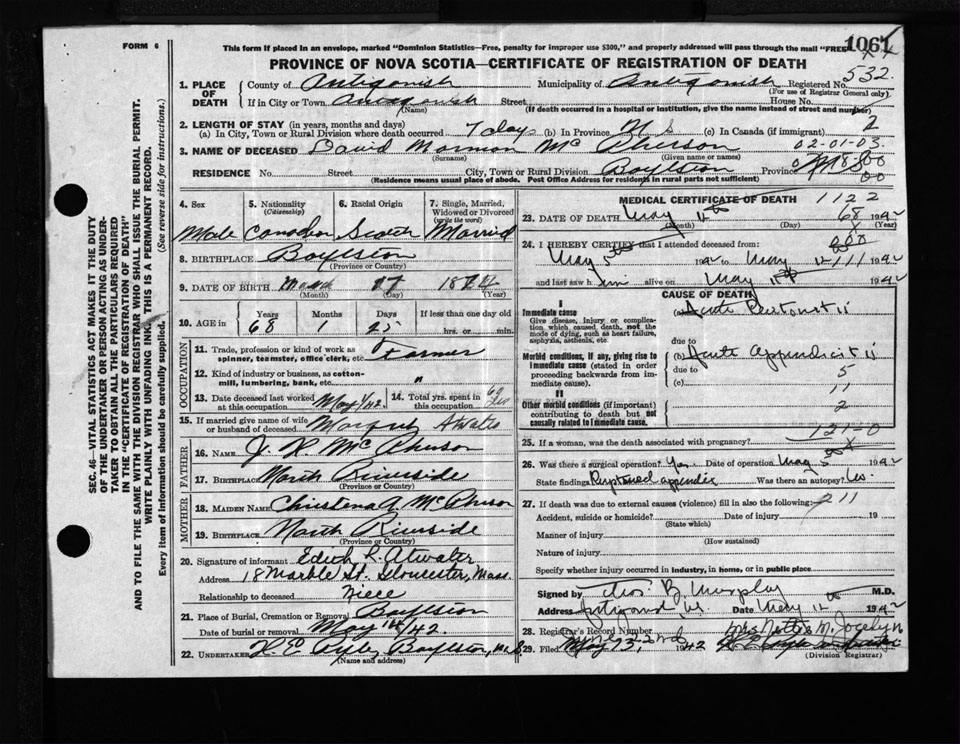 FORM 6
This form if placed in an envelope, marked "Dominion Statistics—Free, penalty for improper use $300," and properly addressed will pass through the mail "FREE"
1061
PROVINCE OF NOVA SCOTIA—CERTIFICATE OF REGISTRATION OF DEATH
1. PLACE OF DEATH County of Antigonish Municipality of Antigonish Registered No. 532
(For use of Registrar General only)
If in City or Town Antigonish Street House No.
(Name) (If death occurred in a hospital or institution, give the name instead of street and number)
2. LENGTH OF STAY (in years, months and days)
(a) In City, Town or Rural Division where death occurred 7 days (b) In Province N S (c) In Canada (if immigrant) 2
02-01-03
3. NAME OF DECEASED David Mormon Mc Pherson
(Surname) (Given name or names)
RESIDENCE No. Street City, Town or Rural Division Boylston Province
(Residence means usual place of abode. Post Office Address for residents in rural parts not sufficient)
4. Sex 5. Nationality (Citizenship) 6. Racial Origin 7. Single, Married, Widowed or Divorced (write the word)
Male Canadian Scotch Married
8. BIRTHPLACE Boylston
(Province or Country)
9. DATE OF BIRTH March 17 1874
(Month) (Day) (Year)
10. AGE in Years Months Days If less than one day old
68 1 25 hrs. or min.
OCCUPATION
11. Trade, profession or kind of work as spinner, teamster, office clerk, etc. Farmer
12. Kind of industry or business, as cotton-mill, lumbering, bank, etc. "
13. Date deceased last worked at this occupation May 1/42. 14. Total yrs. spent in this occupation 60
15. If married give name of wife or husband of deceased Atwater
FATHER
16. NAME J. R. McPherson
17. BIRTHPLACE North Riverside
(Province or Country)
MOTHER
18. MAIDEN NAME Christena A. McPherson
19. BIRTHPLACE North Riverside
(Province or Country)
20. Signature of informant Edith R. Atwater
Address 18 Marble St. Gloucester, Mass.
Relationship to deceased Niece
21. Place of Burial, Cremation or Removal Boylston
Date of burial or removal May 14/42.
22. UNDERTAKER Boylston, N.S.
(Name and address)
MEDICAL CERTIFICATE OF DEATH 1122
23. DATE OF DEATH May 1942
(Month) (Day) (Year)
68
24. I HEREBY CERTIFY that I attended deceased from:
May 5th 1942 to May 12 1942
and last saw him alive on May 1942
CAUSE OF DEATH
I
Immediate cause
Give disease, injury or complication which caused death, not the mode of dying, such as heart failure, asphyxia, asthenia, etc.
(a) Acute Peritonitis
due to
Morbid conditions, if any, giving rise to immediate cause (stated in order proceeding backwards from immediate cause).
(b) Acute Appendicitis
due to 5
(c) 11
II
Other morbid conditions (if important) contributing to death but not causally related to immediate cause.
2
121-0
25. If a woman, was the death associated with pregnancy?
26. Was there a surgical operation? Yes Date of operation May 5th 1942
State findings Ruptured appendix Was there an autopsy?
27. If death was due to external causes (violence) fill in also the following: 211
Accident, suicide or homicide? Date of injury 19
(State which)
Manner of injury
(How sustained)
Nature of injury
Specify whether injury occurred in industry, in home, or in public place
Signed by Thos. B. Murphy M.D.
Address Antigonish Date May 12th 1942
28. Registrar's Record Number
Mrs Nettie M. Jocelyn
29. Filed 1942
(Division Registrar)
SEC. 46—VITAL STATISTICS ACT MAKES IT THE DUTY
OF THE UNDERTAKER OR PERSON ACTING AS UNDER-
TAKER TO OBTAIN ALL THE PARTICULARS REQUIRED
IN THE "CERTIFICATE OF REGISTRATION OF DEATH"
AND TO FILE THE SAME WITH THE DIVISION REGISTRAR WHO SHALL ISSUE THE BURIAL PERMIT.
WRITE PLAINLY WITH UNFADING INK. THIS IS A PERMANENT RECORD.
Every item of information should be carefully supplied. (See reverse side for instructions.)